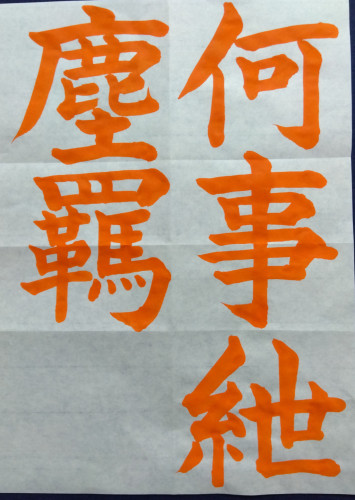 何事紲
塵羈